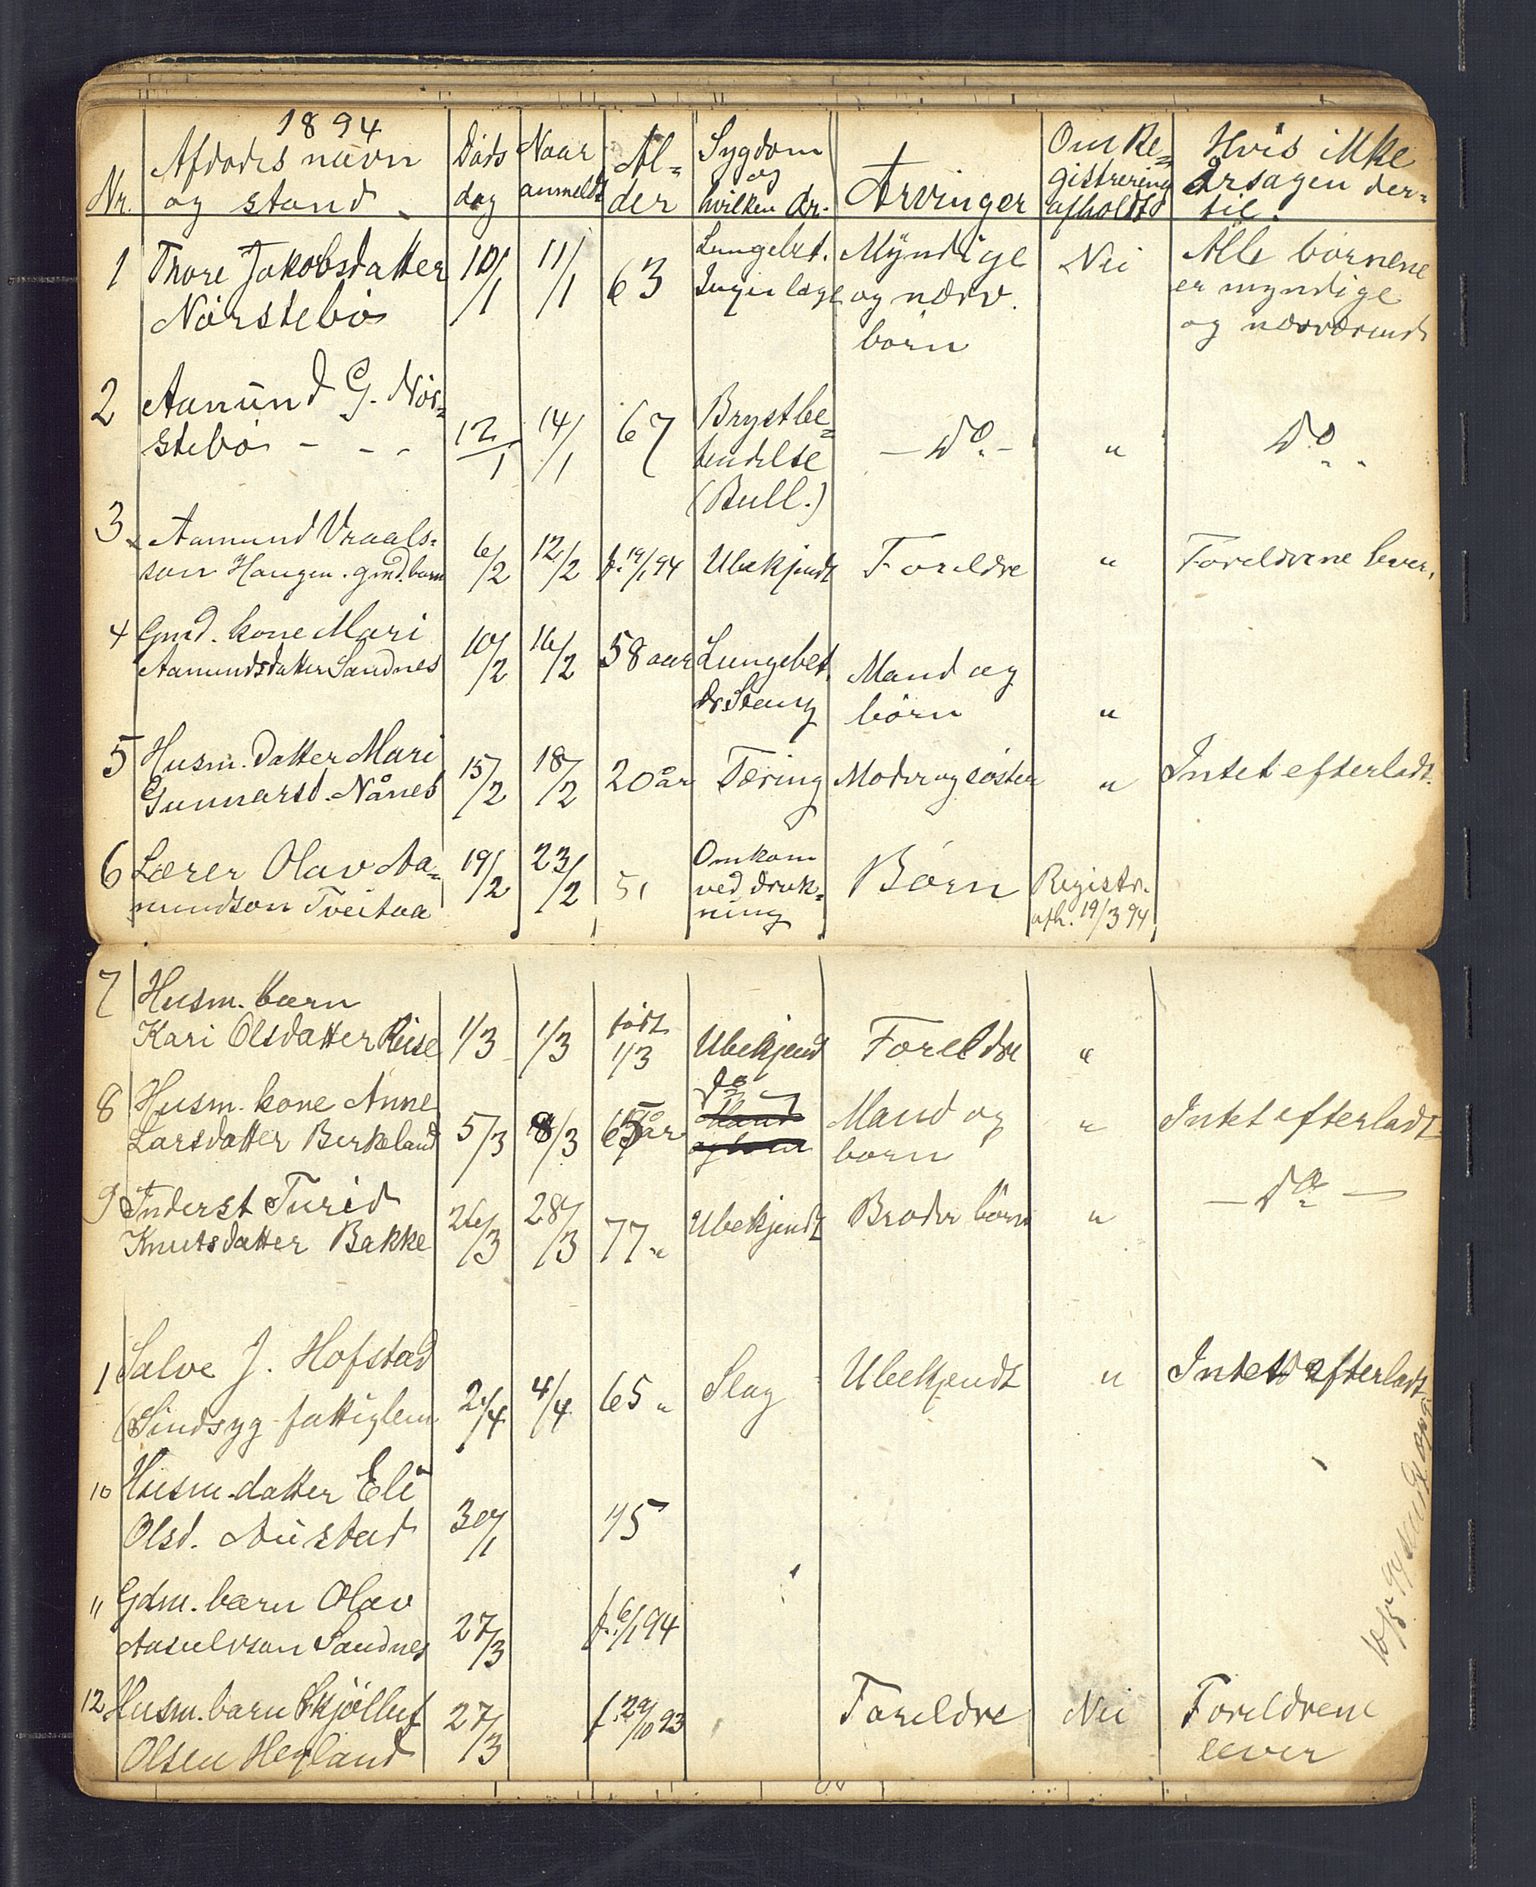 1894
Nr. Afdødes navn og stand Døds dag Naar anmeldt Al=der Sygdom og hvilken dr. Arvinger Om Re=gistrering afholdt Hvis ikke årsagen der=til.
1 Thore Jakobsdatter Nørstebø 10/1 11/1 63 Lungebet. Ingen læge Myndige og nærv. börn Nei Alle börnene er myndige og nærværende
2 Aanund G. Nør=stebø - - - 12/1 14/1 67 Brystbe=tendelse (Bull.) - Do - " Do
3 Aamund Vraals=son Haugen. gmd. barn 6/2 12/2 f. 19/1 94 Ubekjendt Foreldre " Foreldrene lever.
4 Gmd. kone Mari Aamundsdatter Sandnes 10/2 16/2 58 aar Lungebet. dr. Stang Mand og börn "
5 Husm. datter Mari Gunnarsd. Nånes 15/2 18/2 20 år Tæring Moder og søster " Intet efterladt.
6 Lærer Olav Aa=mundson Tveitaa 19/2 23/2 51 Omkom ved druk=ning Börn Registr. afh. 19/3 94
7 Husm. barn Kari Olsdatter Reise 1/3 1/3 født 1/3 Ubekjend Foreldre "
8 Husm. kone Anne Larsdatter Birkeland 5/3 8/3 65 år do Mand og born " Intet efterladt
9 Inderst Turid Knutsdatter Bakke 26/3 28/3 77 " Ubekjendt Broder börn " - Do -
1 Salve J. Hofstad (Sindsyg fattiglem 2/4 4/4 65 " Slag Ubekjendt " Intet efterladt.
10 Husm. datter Eli Olsd. Austad 30/1 45
" Gdm. barn Olav Aasulvson Sandnes 27/3 f. 6/1 94
12 Husm. barn Skjölluf Olsen Hegland 27/3 f. 29/10 93 Foreldre Nei Foreldrene lever